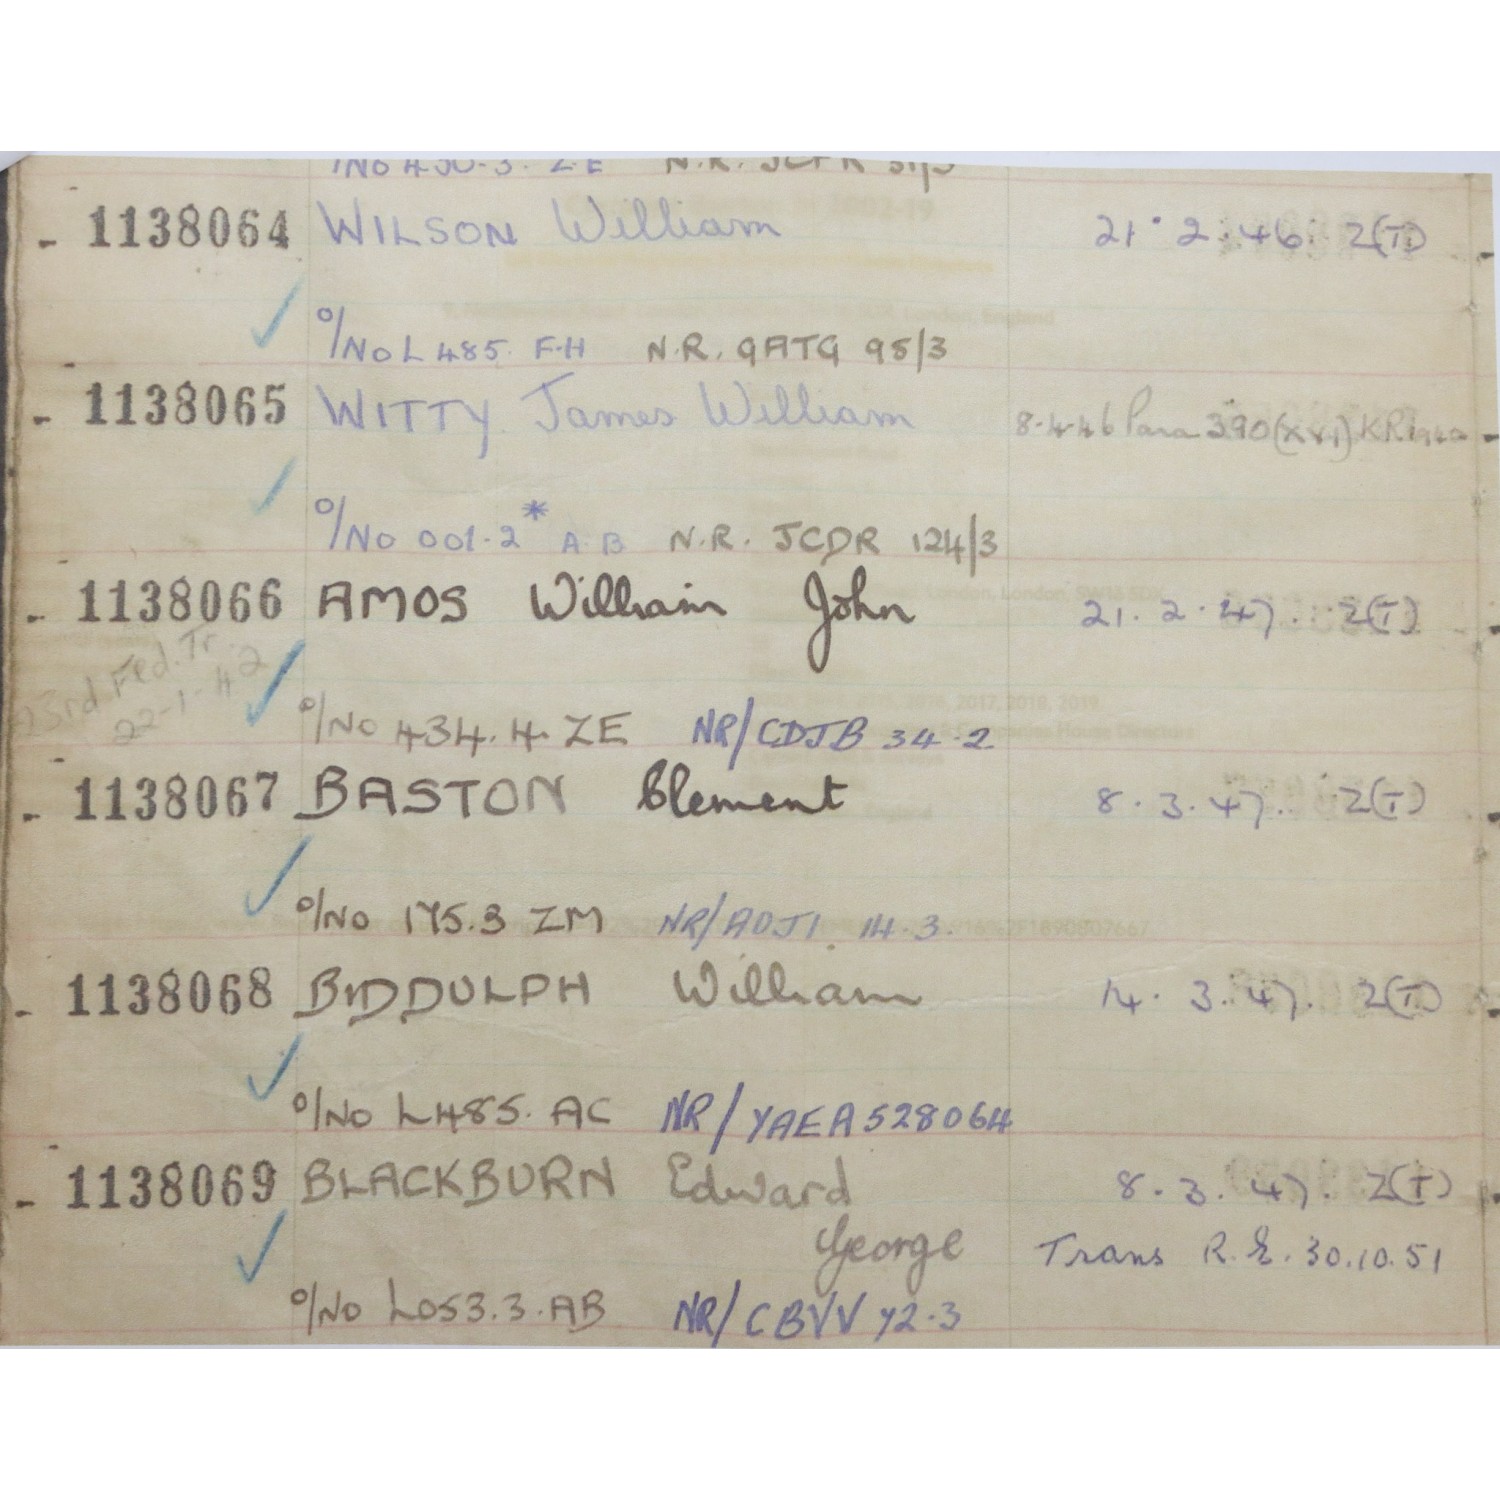 1138064 WILSON William 21.2.46. Z(T)
O/No L485. F.H N.R. QATG 95/3
1138065 WITTY James William 8.4.46 Para 390(xvi) KR 1940
O/No 001.2* A.B N.R. JCDR 124/3
1138066 AMOS William John 21.2.47. Z(T)
3rd. Fed. Tr.
22-1-42
O/No 434.4. ZE NR/CDJB 34.2
1138067 BASTON Clement 8.3.47. Z(T)
O/No 175.3 ZM NR/AOJI 14.3.
1138068 BIDDULPH William 14.3.47. Z(T)
O/No L485. AC NR/YAEA 528064
1138069 BLACKBURN Edward 8.3.47. Z(T)
George Trans R.E. 30.10.51
O/No L053.3.AB NR/CBVV Y2.3